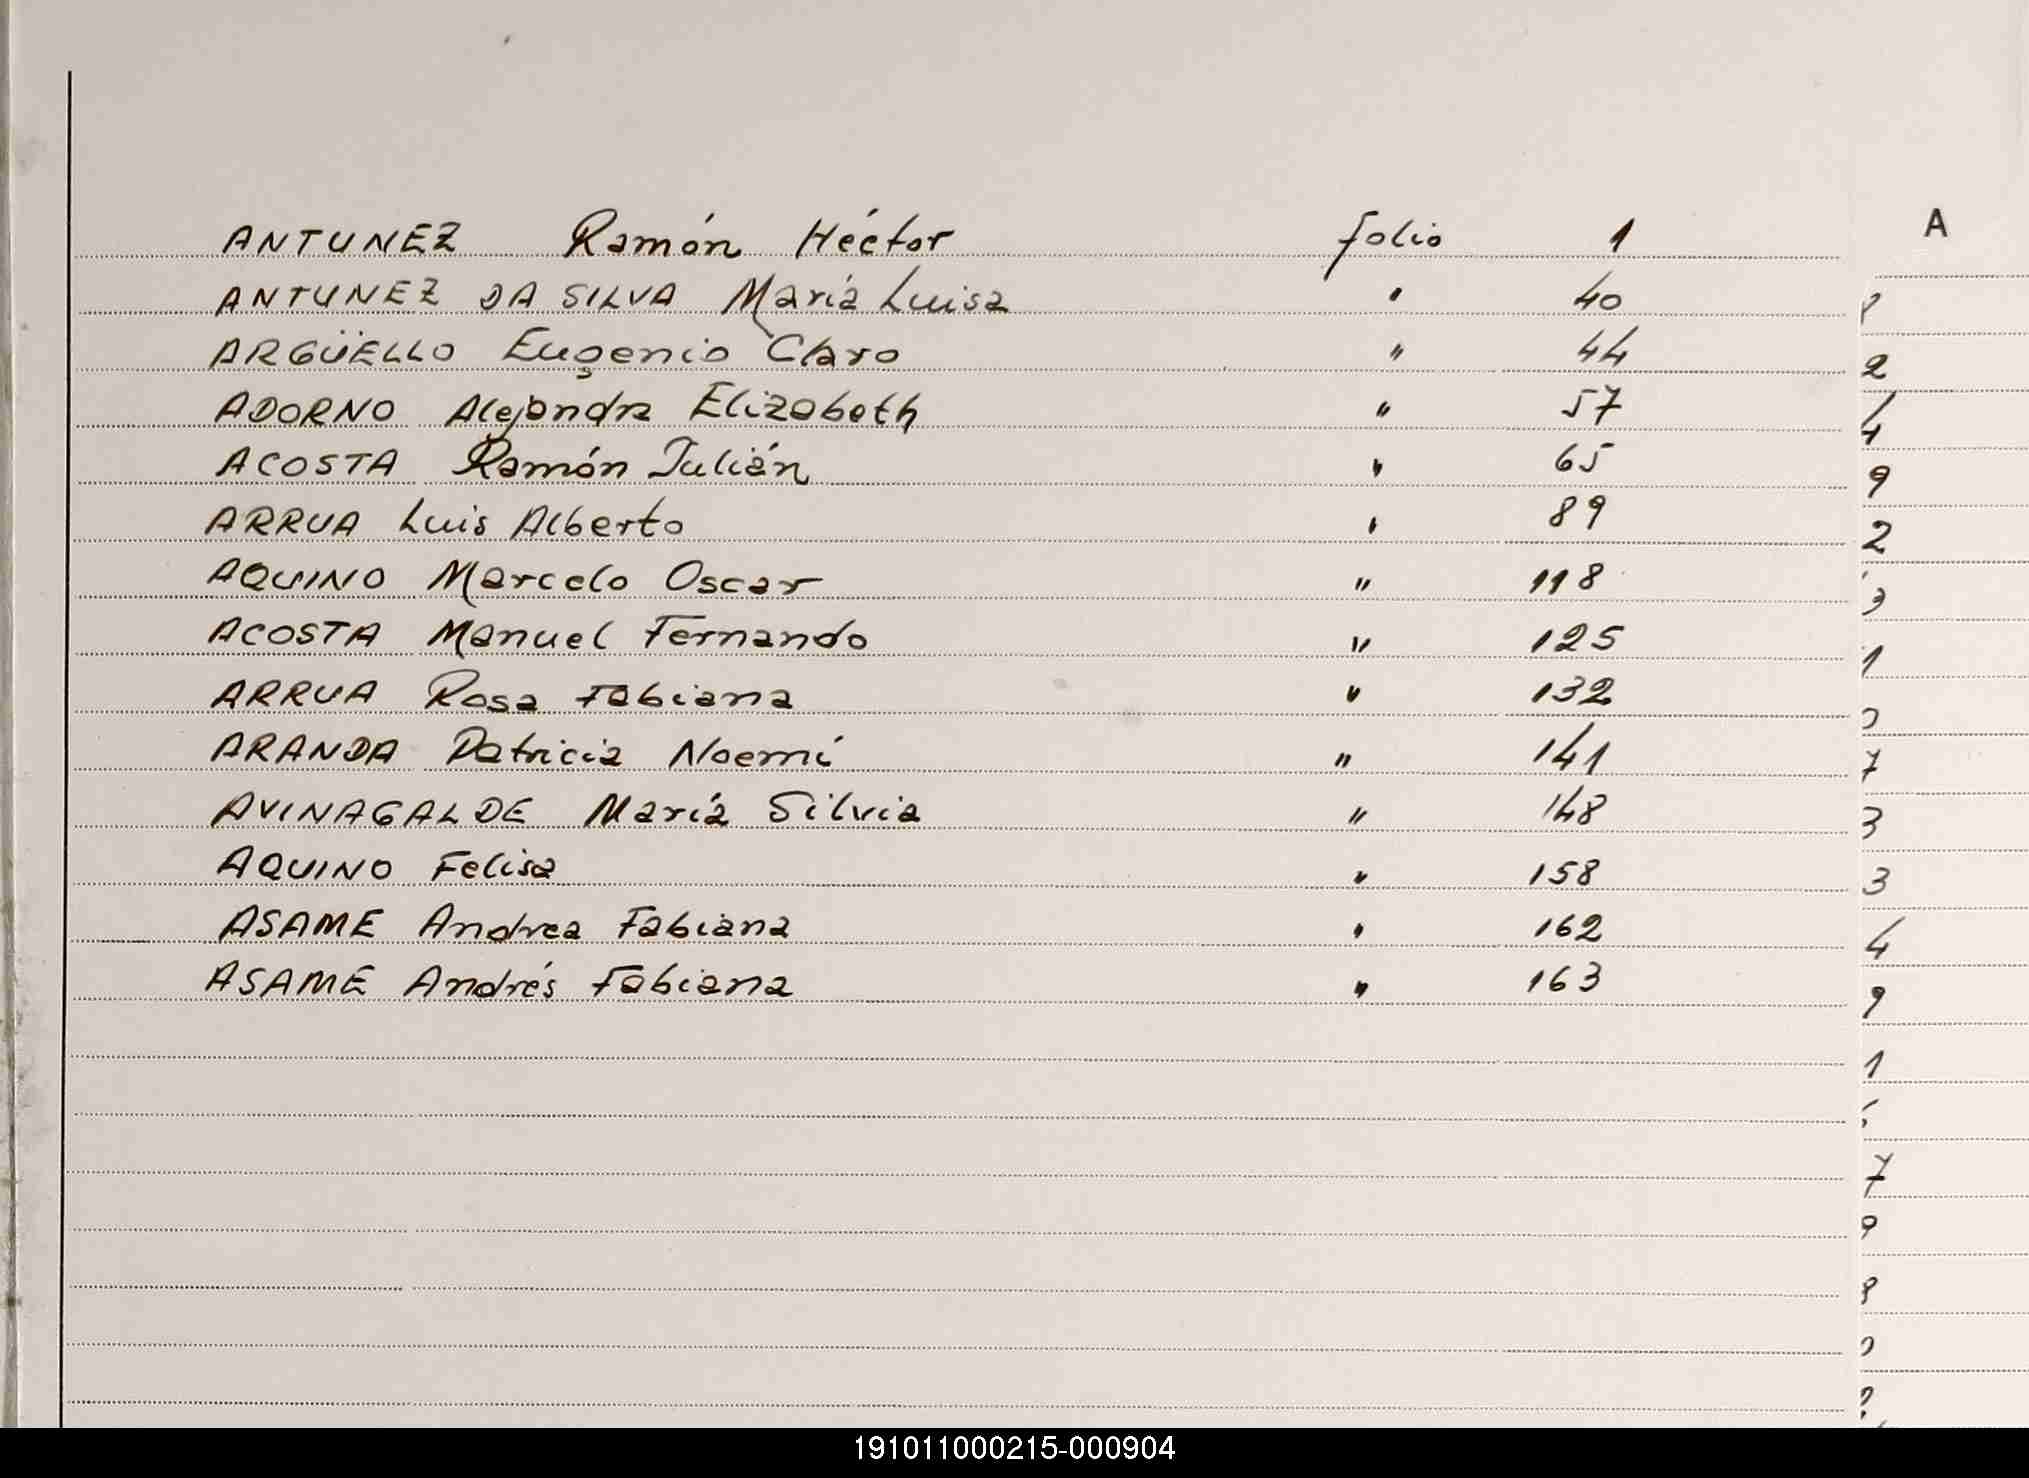 A
ANTUNEZ Ramón Héctor folio 1
ANTUNEZ DA SILVA María Luisa " 40
ARGÜELLO Eugenio Claro " 44
ADORNO Alejandra Elizabeth " 57
ACOSTA Ramón Julián " 65
ARRUA Luis Alberto " 89
AQUINO Marcelo Oscar " 118
ACOSTA Manuel Fernando " 125
ARRUA Rosa Fabiana " 132
ARANDA Patricia Noemí " 141
AVINAGALDE María Silvia " 148
AQUINO Felisa " 158
ASAME Andrea Fabiana " 162
ASAME Andrés Fabiana " 163
191011000215-000904